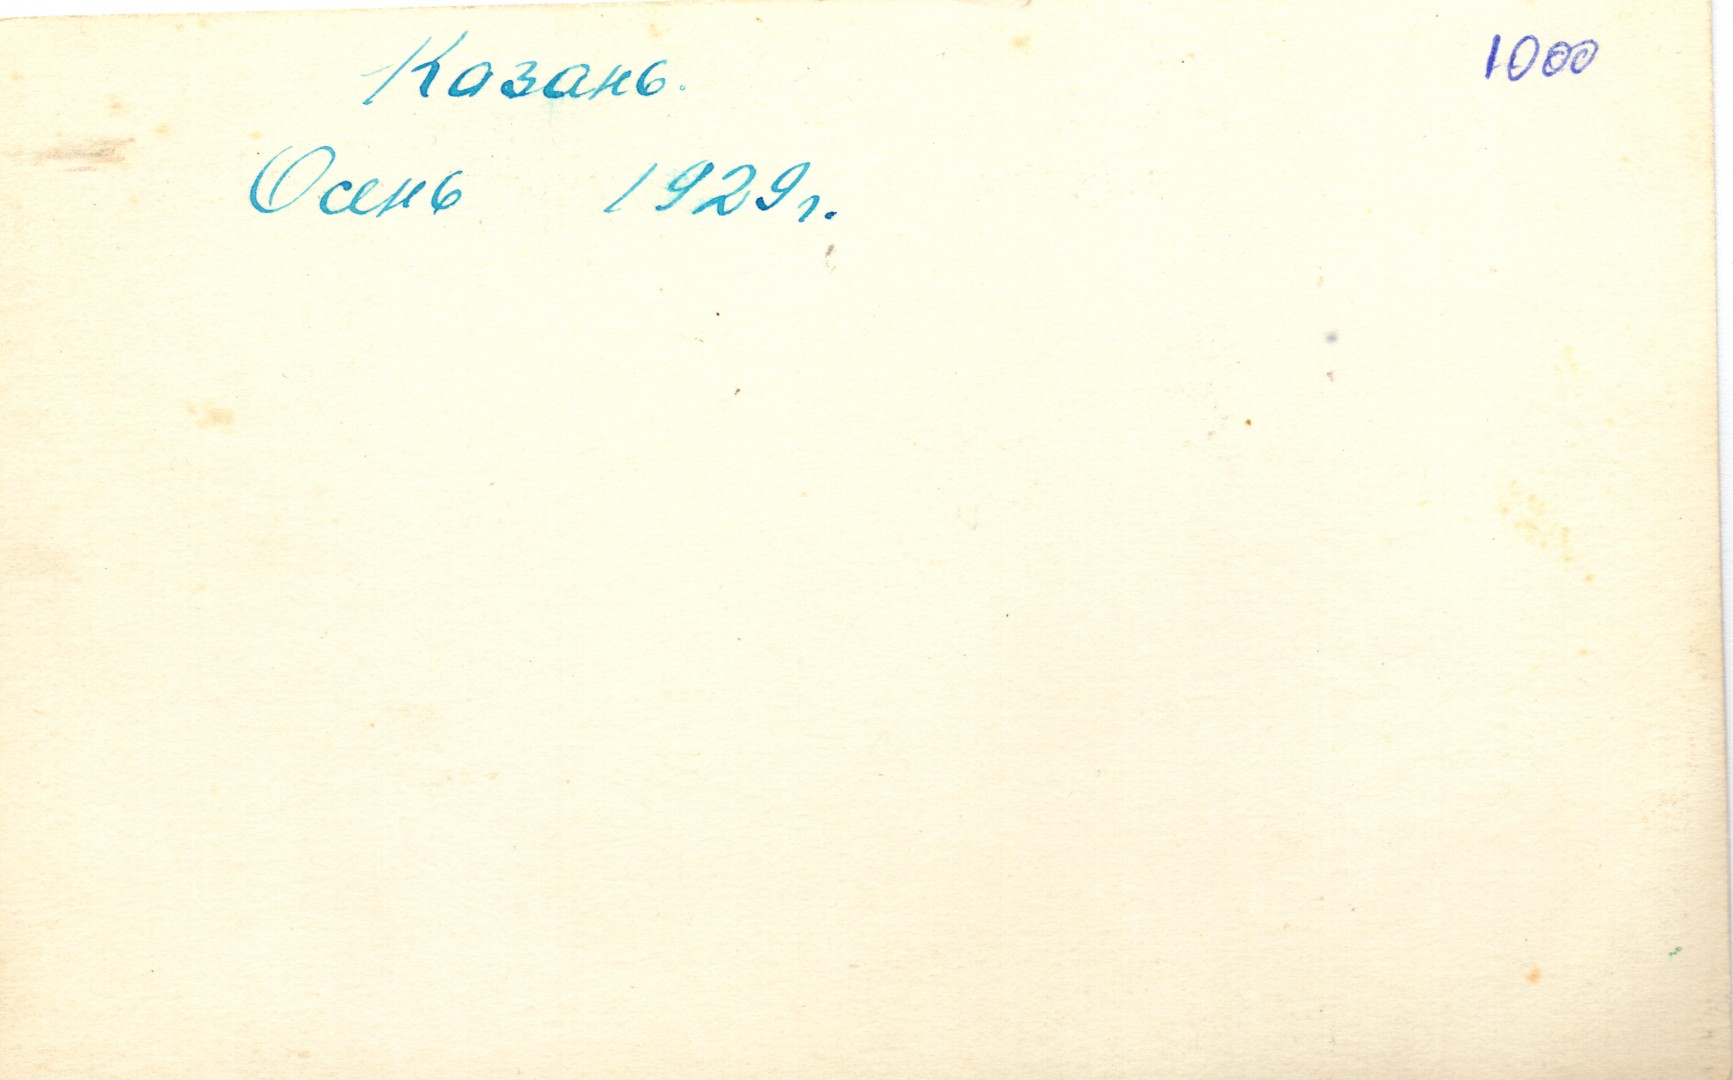 Казань.
1000
Осень 1929 г.